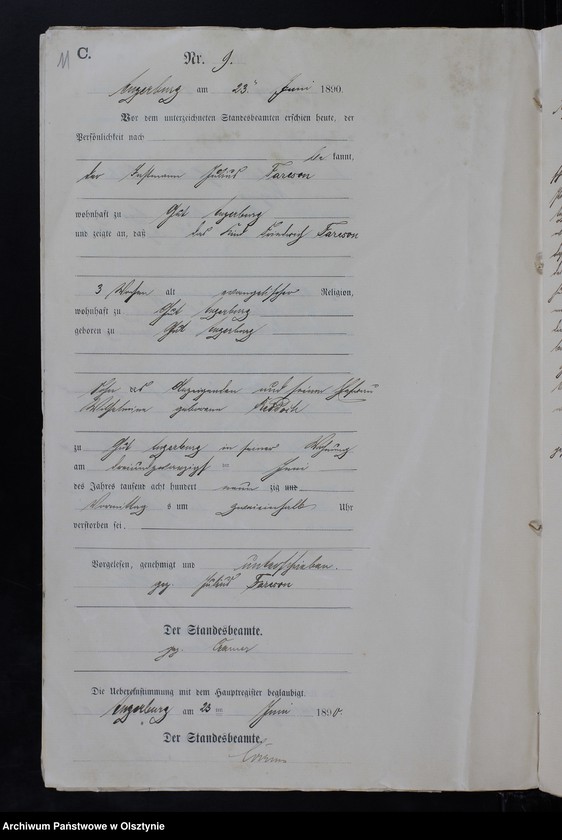 11 C.
Nr. 9.
Angerburg am 23ten Juni 1890.
Vor dem unterzeichneten Standesbeamten erschien heute, der
Persönlichkeit nach
be kannt,
der Instmann Julius
wohnhaft zu Gut Angerburg
und zeigte an, daß das Kind Friedrich
3 Wochen alt evangelischer Religion,
wohnhaft zu Gut Angerburg
geboren zu Gut Angerburg
Sohn des Anzeigenden und seiner Ehefrau
Wilhelmine geborene
zu Gut Angerburg in seiner Wohnung
am dreiundzwanzigsten Juni
des Jahres tausend acht hundert neun zig und
Vormittag s um Uhr
verstorben sei.
Vorgelesen, genehmigt und unterschrieben.
gez. Julius
Der Standesbeamte.
gez.
Die Uebereinstimmung mit dem Hauptregister beglaubigt.
Angerburg am 23ten Juni 1890.
Der Standesbeamte.
Archiwum Państwowe w Olsztynie